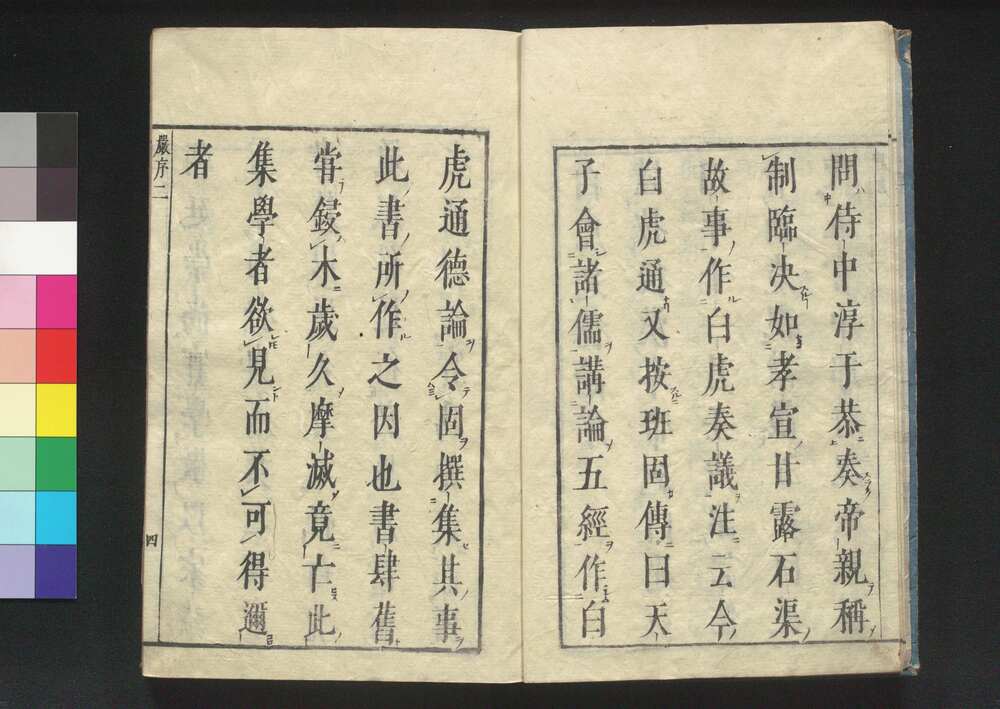 問侍中淳于恭奏帝親稱
制臨决如孝宣甘露石渠
故事作白虎奏議注云今
白虎通又按班固傳曰天
子會諸儒講論五經作白
虎通德論令固撰集其事
此書所作之因也書肆舊
甞鋟木歲久摩滅竟亡此
集學者欲見而不可得邇
者
嚴序二
四